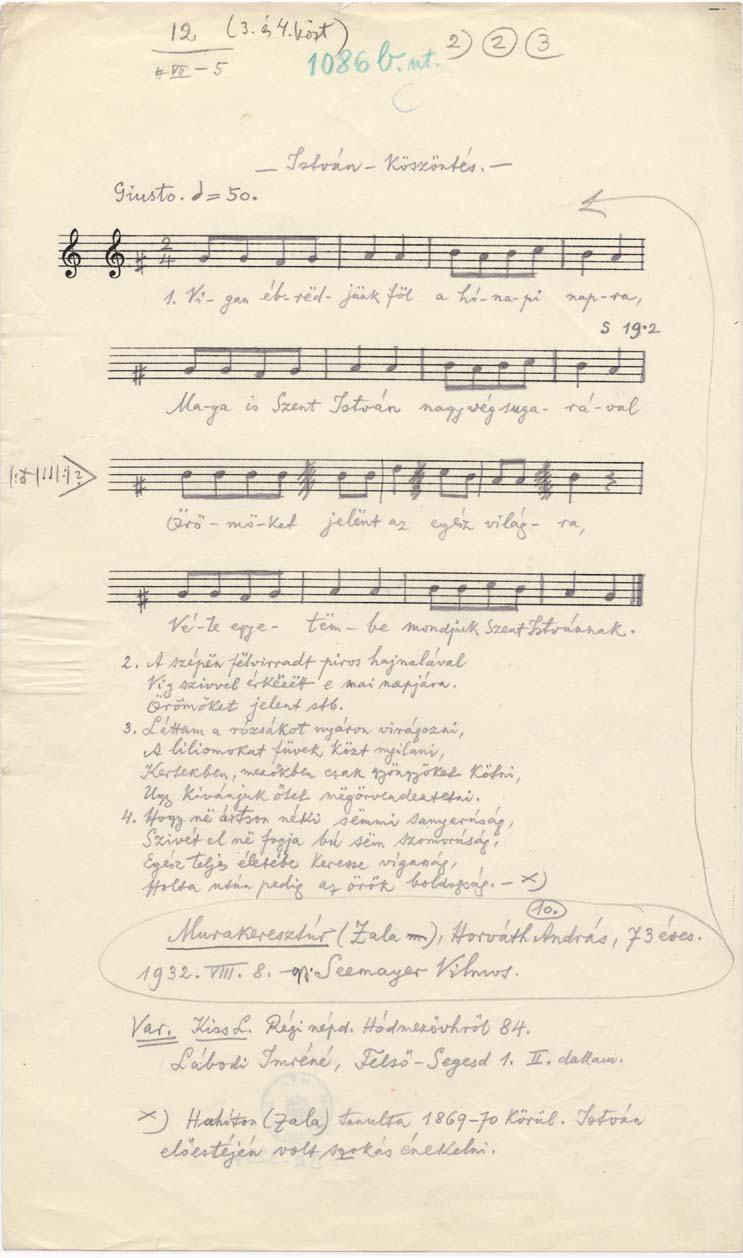 12 (3. és 4. közt)
VII - 5
1086 b. nt.
2) 2 3
— István - Köszöntés. —
Giusto. = 50.
2
4
1. Vi - gan éb - rëd - jünk föl a hó - na - pi nap - ra,
S 19.2
Ma - ga is Szent István nagy vég suga - rá - val
Örö - mö - ket jelënt az egész vilá - g - ra,
Vé - le egye - tëm - be mondjuk Szent Istvánnak.
2. A szépën fëlvirradt piros hajnalával
Víg szívvel e mai napjára.
Örömöket jelent stb.
3. Láttam a rózsákot nyáron virágozni,
A liliomokat füvek közt nyilani,
Kertekben, mezőkben csak gyöngyöket kötni,
Ugy kivánjuk őtet mëgörvendeztetni.
4. Hogy në ártson nékti sëmmi sanyarúság,
Szivét el në fogja bú sëm szomorúság,
Egész teljes életébe keresse víganság,
Holta után pedig az örök boldogság. - x)
10.
Murakeresztúr (Zala m), Horváth András, 73 éves.
1932. VIII. 8. Seemayer Vilmos.
Var. Kiss L. Régi népd. Hódmezővhről 84.
Lábodi Imréné, Felső-Segesd 1. II. dallam.
x) Hahóton (Zala) tanulta 1869-70 körül. István
előestéjén volt szokás énekelni.